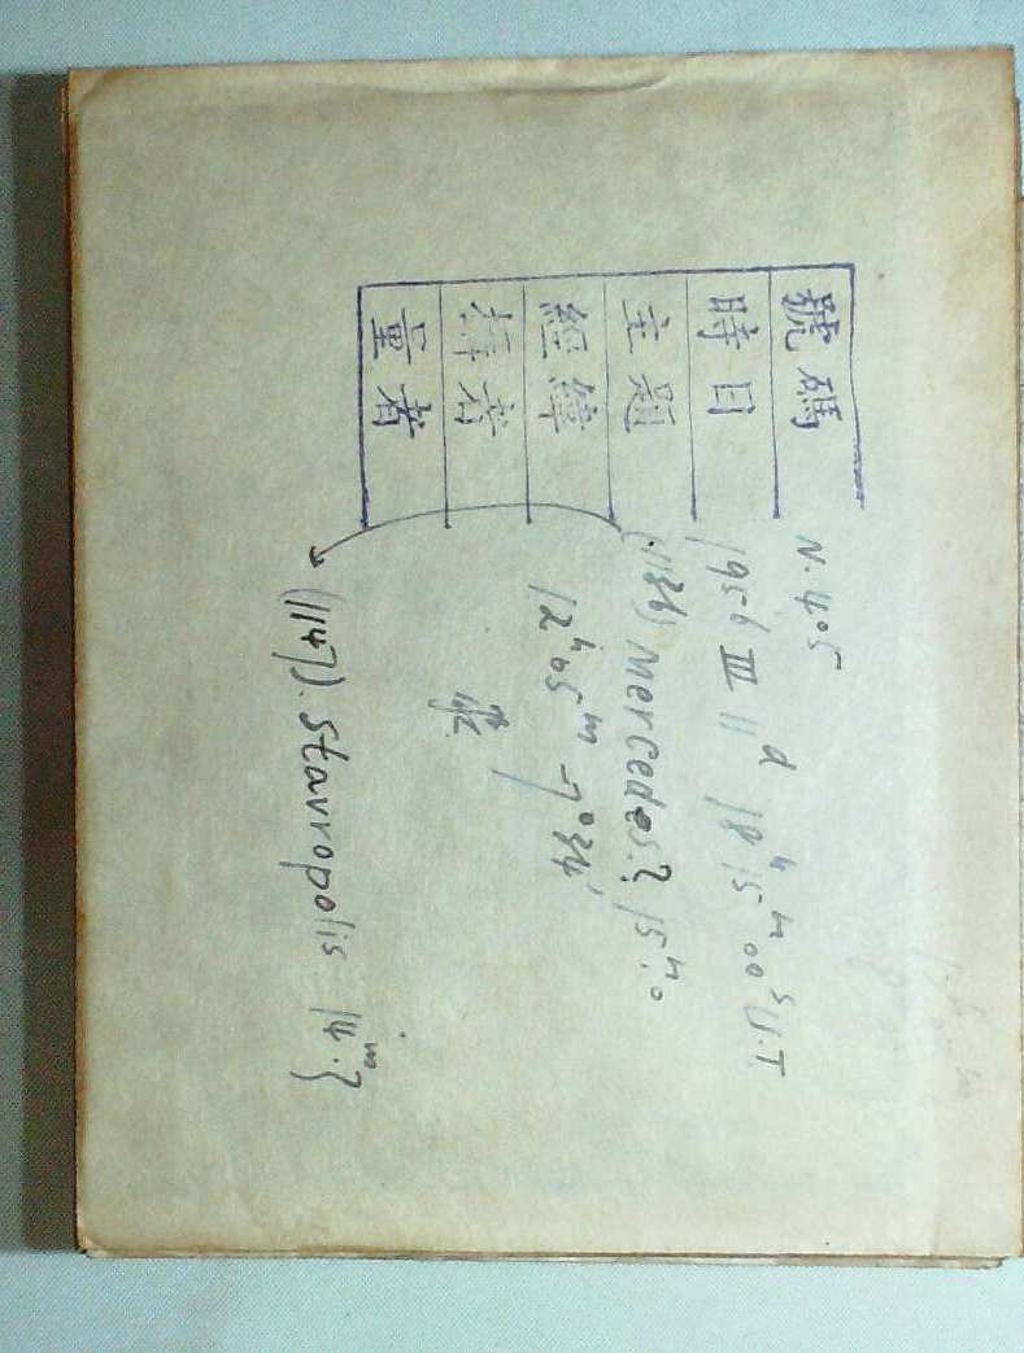 號碼 N.405
時日 1956 III 11ᵈ 18ʰ15ᵐ00ˢ U.T
主題 (1136) Mercedes. 15ᵐ.0
經緯 12ʰ05ᵐ -7°34'
者
量者
(1147). Stavropolis 14ᵐ.3